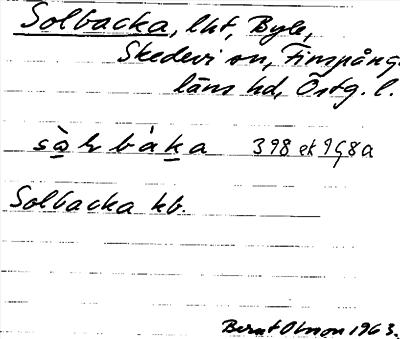 Solbacka, lht, Byle,
Skedevi sn, Finspånga
läns hd, Östg. l.
sòlbàka 398 ek 198a
Solbacka kb
Bernt Olsson 1963.